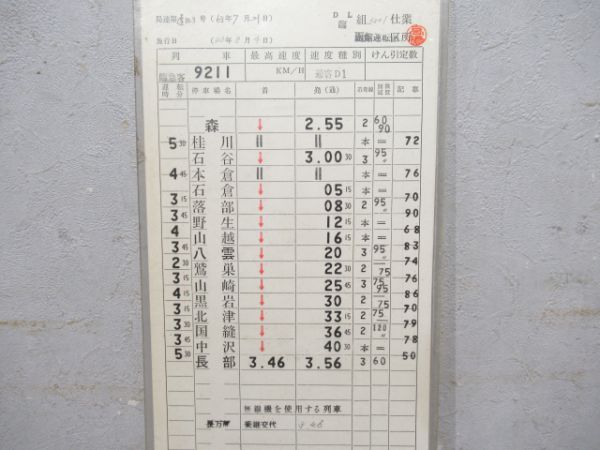 局達第 号 (62年7月 日) DL 臨 組 5001 仕業
施行日 (62年8月4日) 函館運転区所
列車 最高速度 速度種別 けん引定数
臨客 9211 KM/H 通客D1
運転時分 停車場名 着 発(通) 着発線 制限速度 記事
森 ↓ 2.55 2 60 90
5 30 桂川 || || 本 = 72
石谷 ↓ 3.00 30 3 95
4 45 本倉 || || 本 = 76
石倉 ↓ 05 15 本 = 70
3 15 落部 ↓ 08 30 2 95 90
3 45 野生 ↓ 12 15 本 = 68
4 山越 ↓ 16 15 本 = 83
3 45 八雲 ↓ 20 3 95 74
2 30 鷲巣 ↓ 22 30 2 75 76
3 15 山崎 ↓ 25 45 3 75 95 86
4 15 黒岩 ↓ 30 2 75 70
3 15 北津 ↓ 33 15 2 75 79
3 30 国縫 ↓ 36 45 2 120 78
3 45 中沢 ↓ 40 30 本 = 50
5 30 長部 3.46 3.56 3 60
無線機を使用する列車
長万部 乗継交代